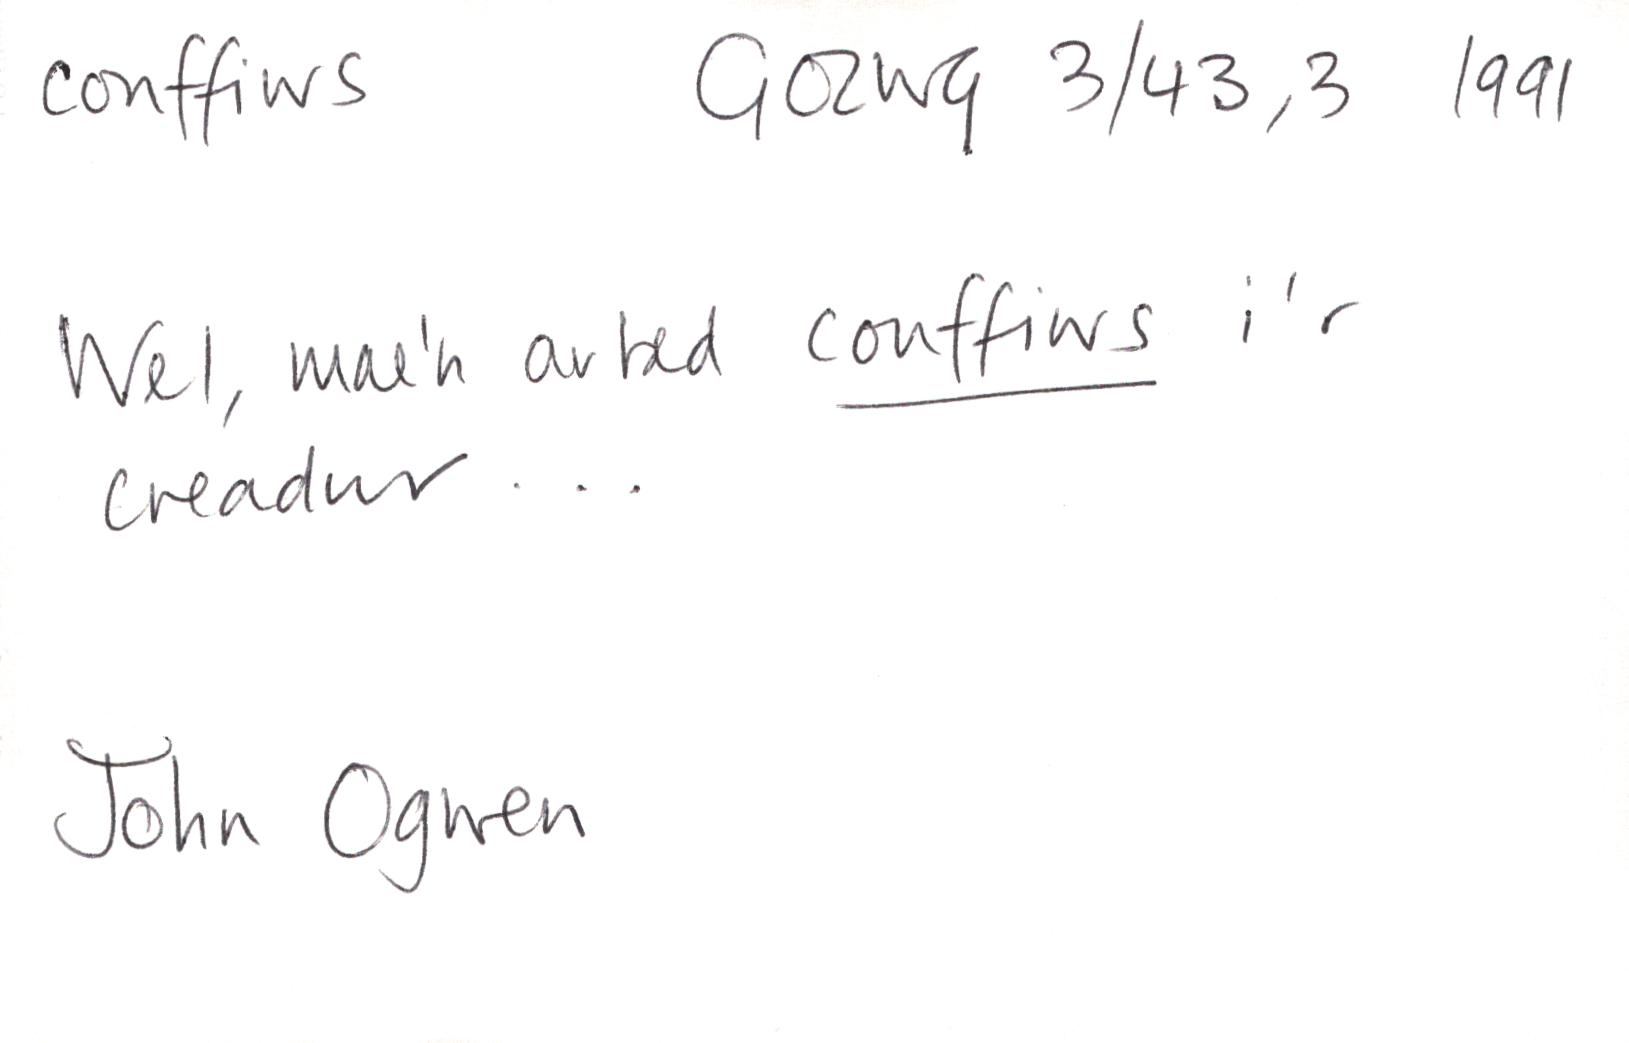 conffiws Golwg 3/43,3 1991
Wel, mae'n arbed conffiws i'r
creadur ...
John Ogwen